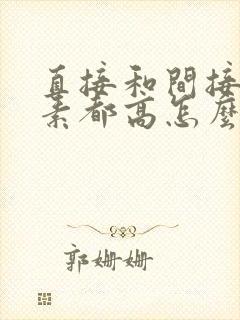 直接和間接
素都高怎麼
郭姍姍